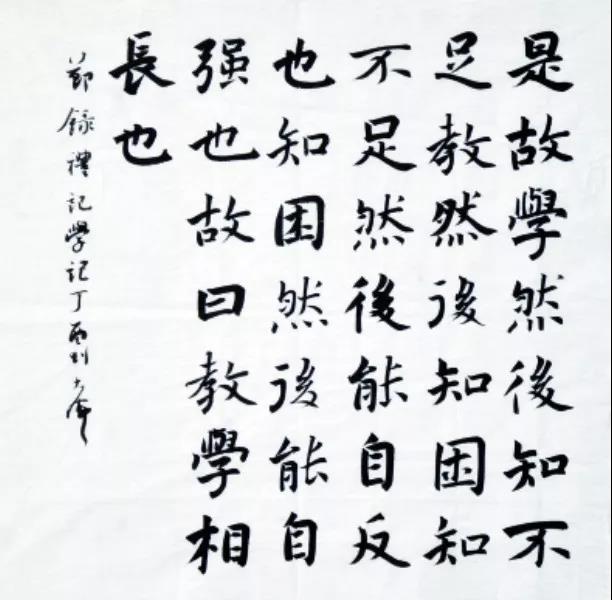 是故學然後知不
足教然後知困知
不足然後能自反
也知困然後能自
强也故曰教學相
長也
節錄禮記學記丁酉